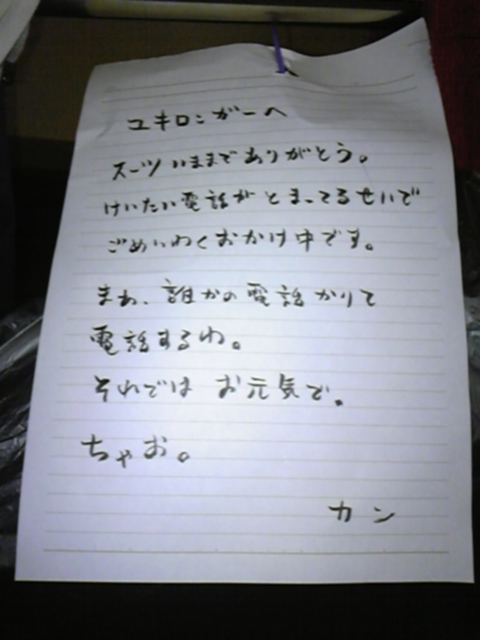 ユキロンガーへ
スーツ いままで ありがとう。
けいたい電話が とまってるせいで
ごめいわくおかけ中です。
まぁ、誰かの電話かりて
電話するわ。
それでは お元気で。
ちゃお。
カン